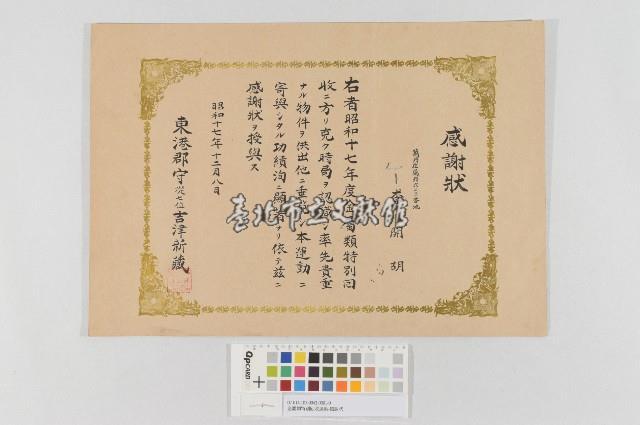 感謝狀
開 胡
右者昭和十七年度 類特別回
收ニ方リ克ク時局ヲ認識シ率先貴重
ナル物件ヲ供出他ニ垂範シ本運動ニ
寄與シタル功績洵ニ顯著ナリ依テ茲ニ
感謝狀ヲ授與ス
昭和十七年十二月八日
東港郡守從七位吉津新藏
臺北市立文獻館
QPCARD